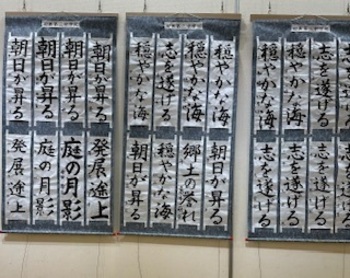 志を遂げる
志を遂げる
穏やかな海
穏やかな海
志を遂げる
志を遂げる
志を遂げる
志を遂げる
穏やかな海
穏やかな海
志を遂げる
穏やかな海
朝日が昇る
郷土の誉れ
穏やかな海
朝日が昇る
朝日が昇る
朝日が昇る
朝日が昇る
朝日が昇る
発展途上
庭の月影
庭の月影
発展途上